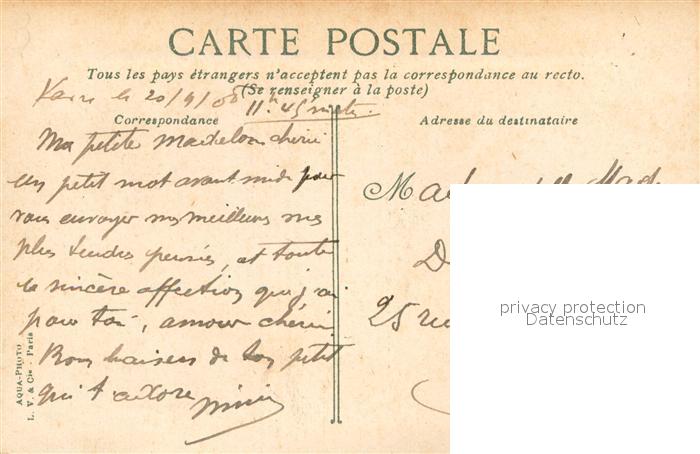 CARTE POSTALE
Tous les pays étrangers n'acceptent pas la correspondance au recto.
(Se renseigner à la poste)
le 20/9/06
11h 45
Correspondance
Ma petite chérie
un petit mot avant midi pour
vous envoyer mes meilleurs mes
plus tendres pensées, et toute
la sincère affection que j'ai
pour toi, amour chérie
Bons baisers de ton petit
qui t'adore
AQUA-PHOTO
L. V. & Cie - Paris
Adresse du destinataire
25 rue
privacy protection
Datenschutz